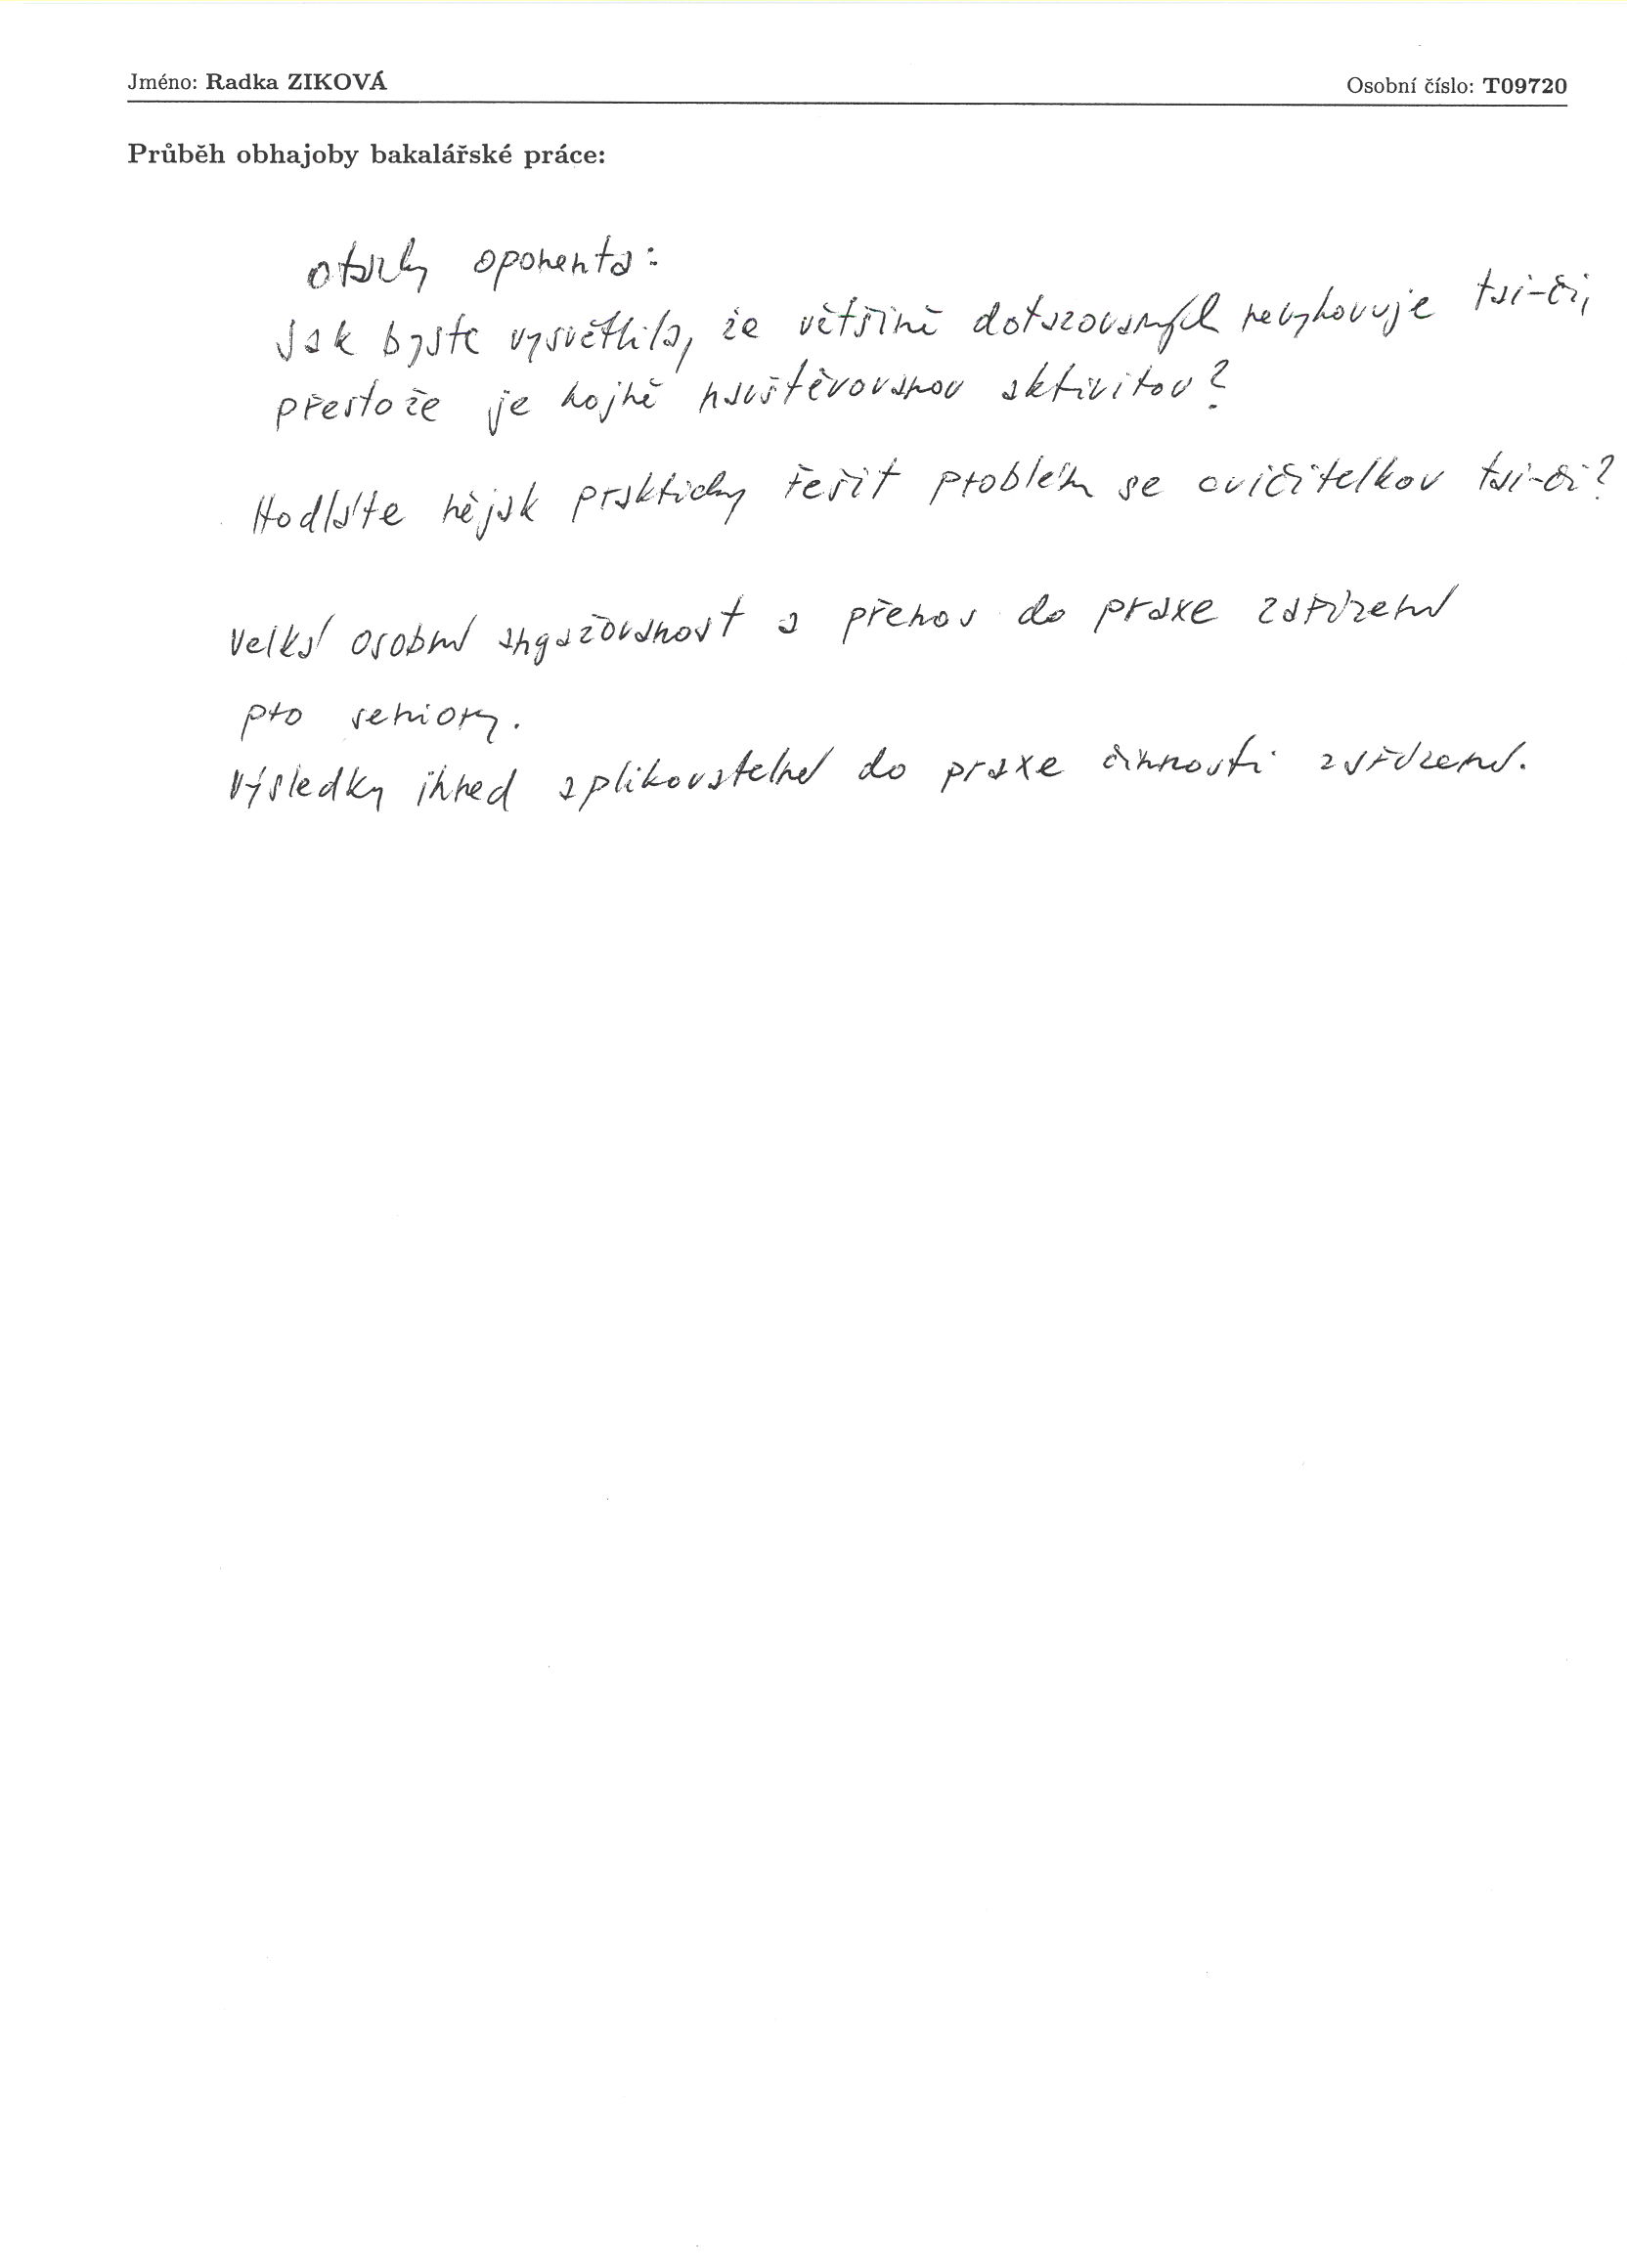 Jméno: Radka ZIKOVÁ
Osobní číslo: T09720
Průběh obhajoby bakalářské práce:
otázky oponenta:
Jak byste vysvětlila, že většině dotazovaných nevyhovuje tai-či,
přestože je hojně navštěvovanou aktivitou?
Hodláte nějak prakticky řešit problém se cvičitelkou tai-či?
Velká osobní angažovanost a přenos do praxe zařízení
pro seniory.
Výsledky ihned aplikovatelné do praxe činnosti zařízení.